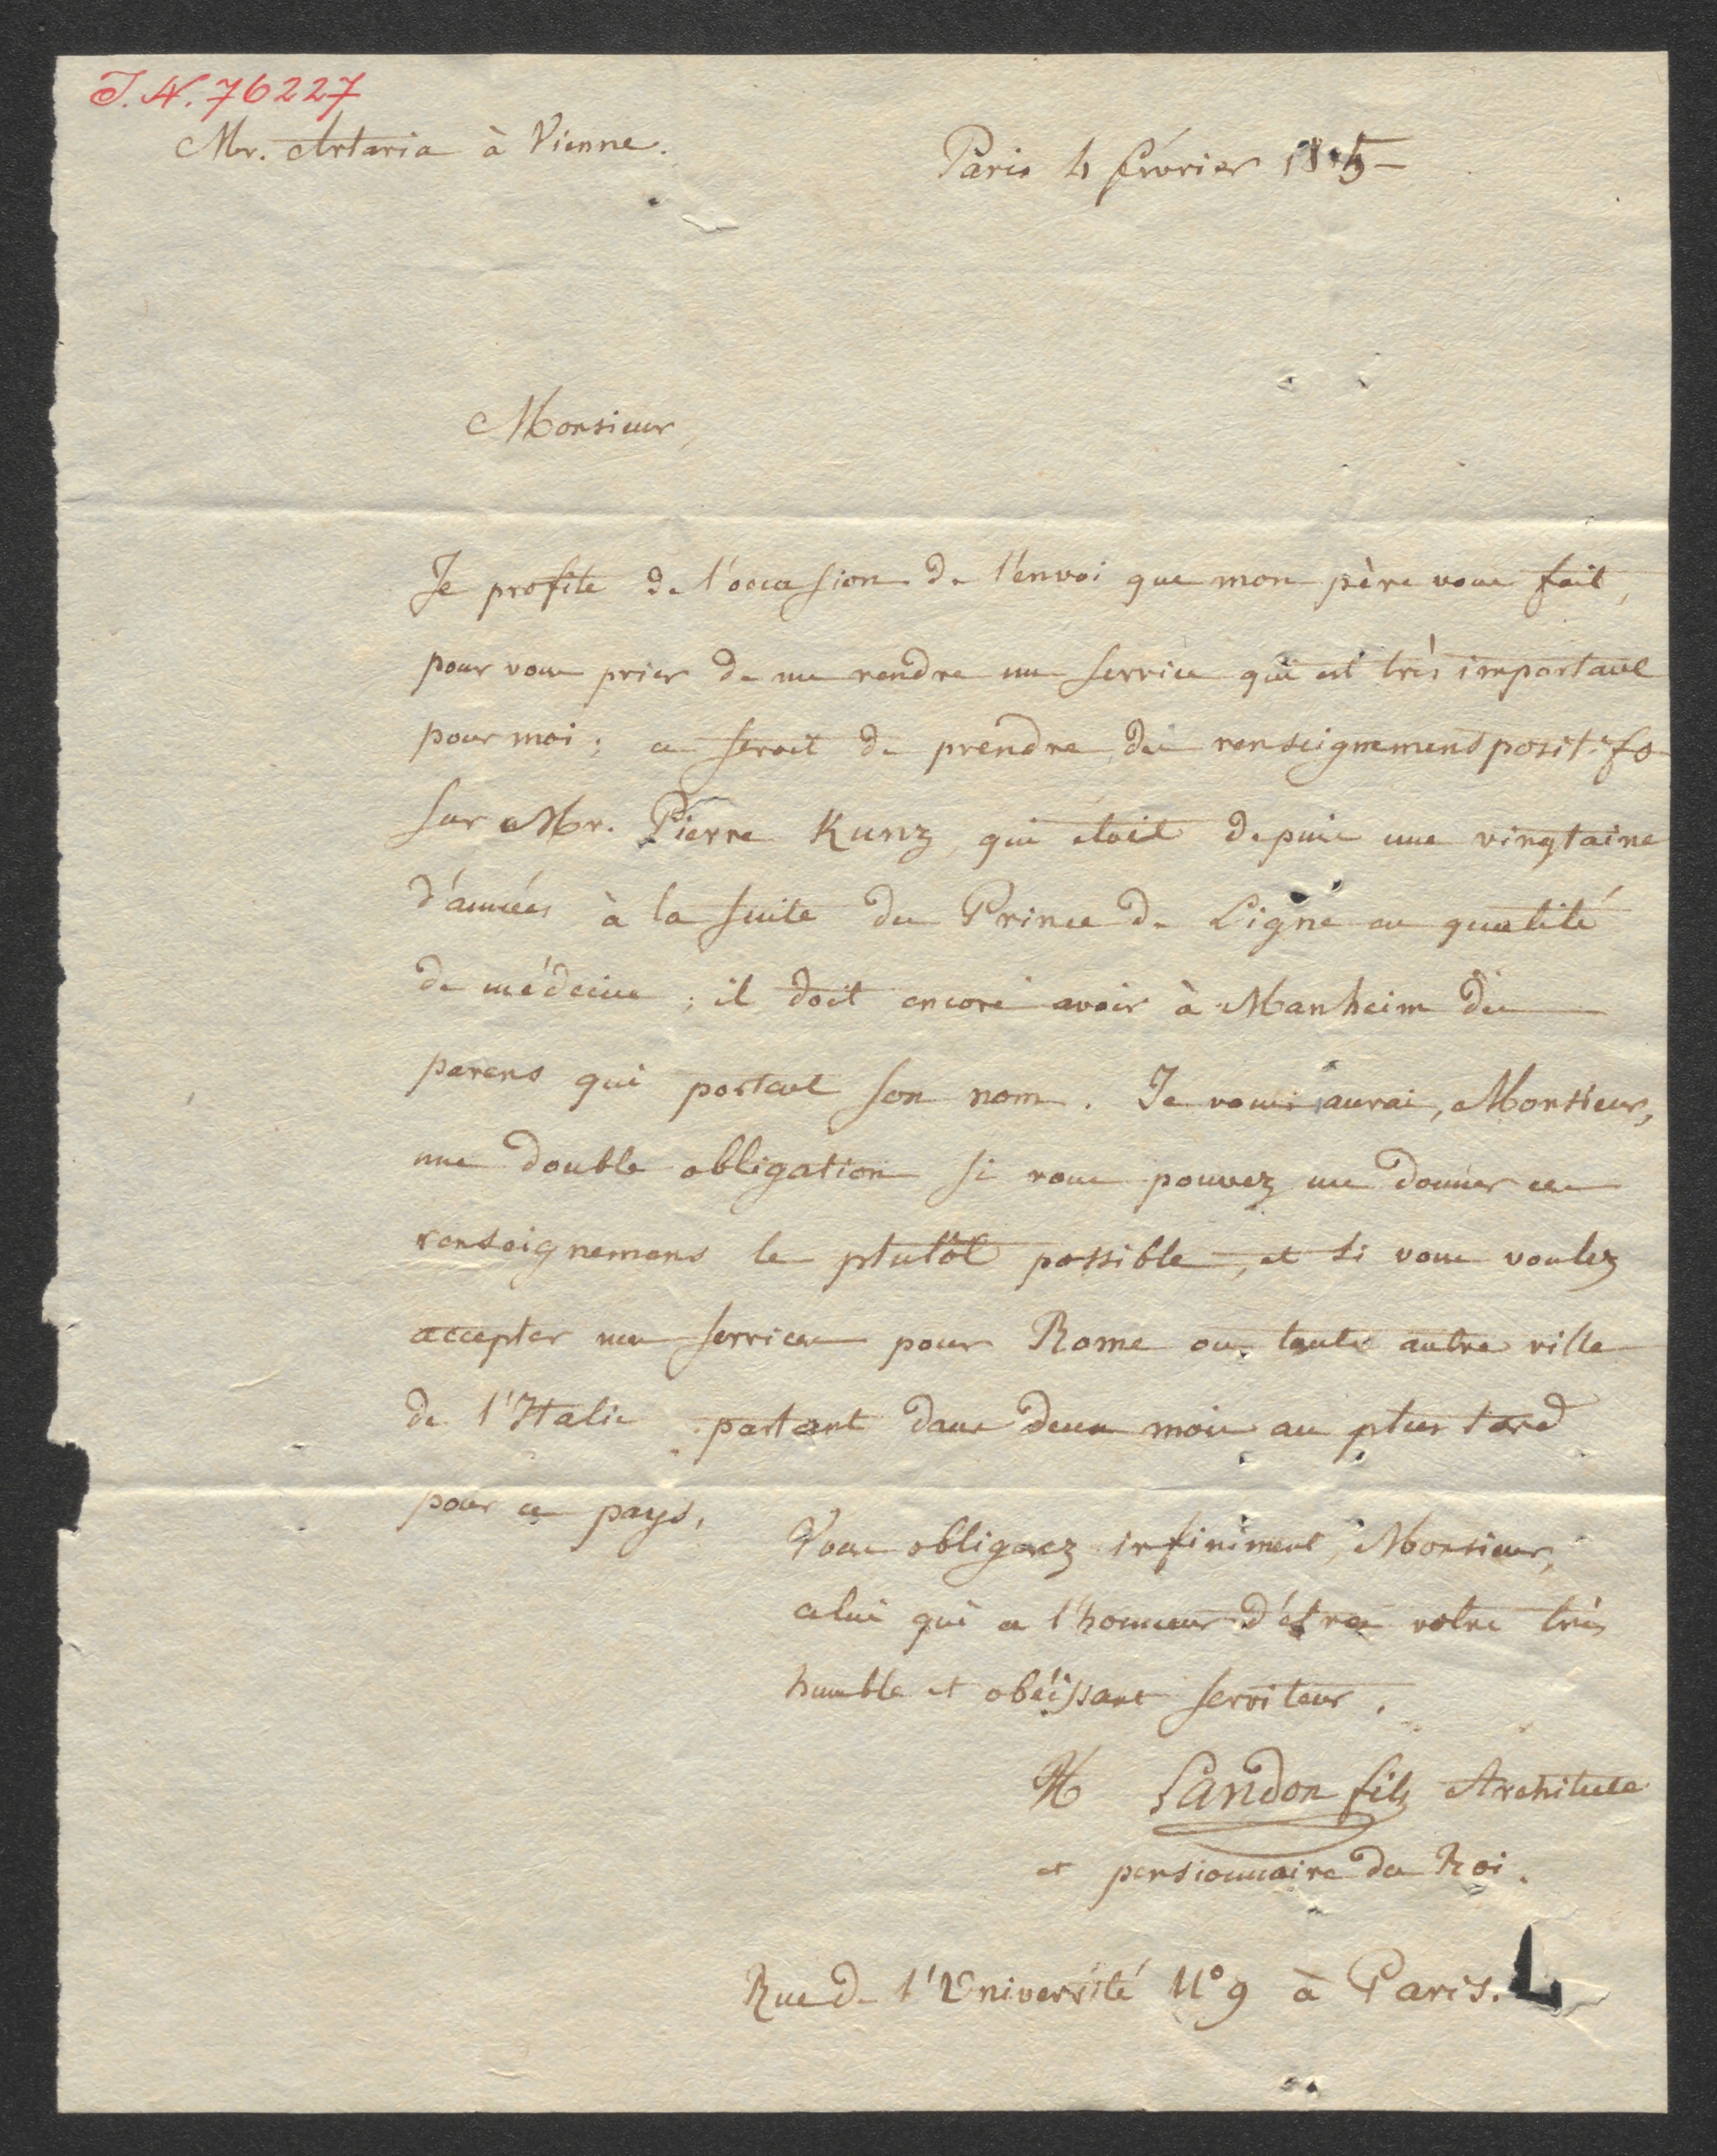 I. N. 76227
Mr. Artaria à Vienne.
Paris 4 février 1815
Monsieur,
Je profite de l'occasion de l'envoi que mon père vous fait,
pour vous prier de me rendre un service qui est très important
pour moi ; ce seroit de prendre des renseignemens positifs
sur Mr. Pierre Kunz, qui étoit depuis une vingtaine
d'années à la suite du Prince de Ligne en qualité
de médecin ; il doit encore avoir à Manheim des
parens qui portent son nom. Je vous aurai, Monsieur,
une double obligation si vous pouvez me donner ces
renseignemens le plutôt possible, et si vous voulez
accepter mes services pour Rome ou toute autre ville
de l'Italie partant dans deux mois au plus tard
pour ce pays,
Vous obligerez infiniment, Monsieur,
celui qui a l'honneur d'être votre très
humble et obéissant serviteur.
H Landon fils Architecte
et pensionnaire du Roi.
Rue de l'Université N° 9 à Paris.